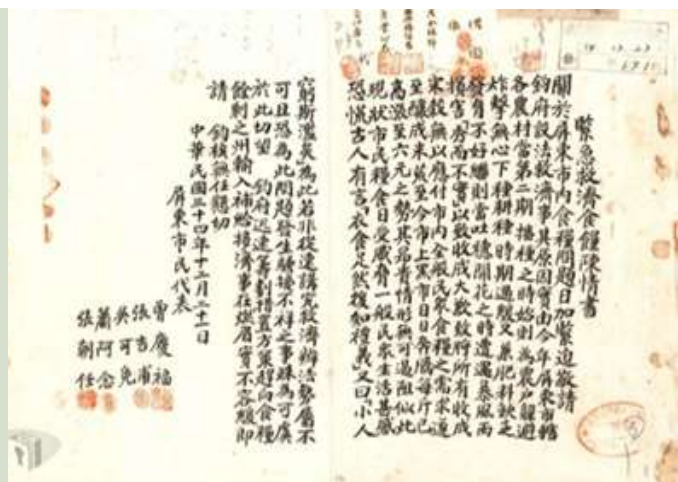 緊急救濟食糧陳情書
關於屏東市內食糧問題日加緊迫敬請
鈞府設法救濟事其原因實由今年屏東市轄
各農村當第二期播種之時始則為農戶躲避
炸擊無心下種耕種時期過晚又兼肥料缺乏
發育不好繼則當吐穗開花之時遭遇暴風雨
損害秀而不實以致收成大歉致將所有收成
宋穀無以應付市內全般民衆食糧之需求遂
至釀成米荒至今市上黑市日日奔騰每斤已
高漲至六元之勢其昂貴情形無可遏阻似此
現狀市民糧食日受威脅一般民衆生活甚感
恐慌古人有言「衣食足然後知禮義」又曰「小人
窮斯濫矣」為此若非從速講究救濟辦法勢屬不
可且恐為此問題發生騷擾不祥之事殊為可虞
於此切望 鈞府迅速籌劃措置方策趕向食糧
餘剩之州輸入補給接濟事在燃眉實不容緩即
請 鈞核無任懇切
中華民國三十四年十二月二十一日
屏東市民代表
曾慶福
張吉甫
吳可免
蕭阿念
張創任